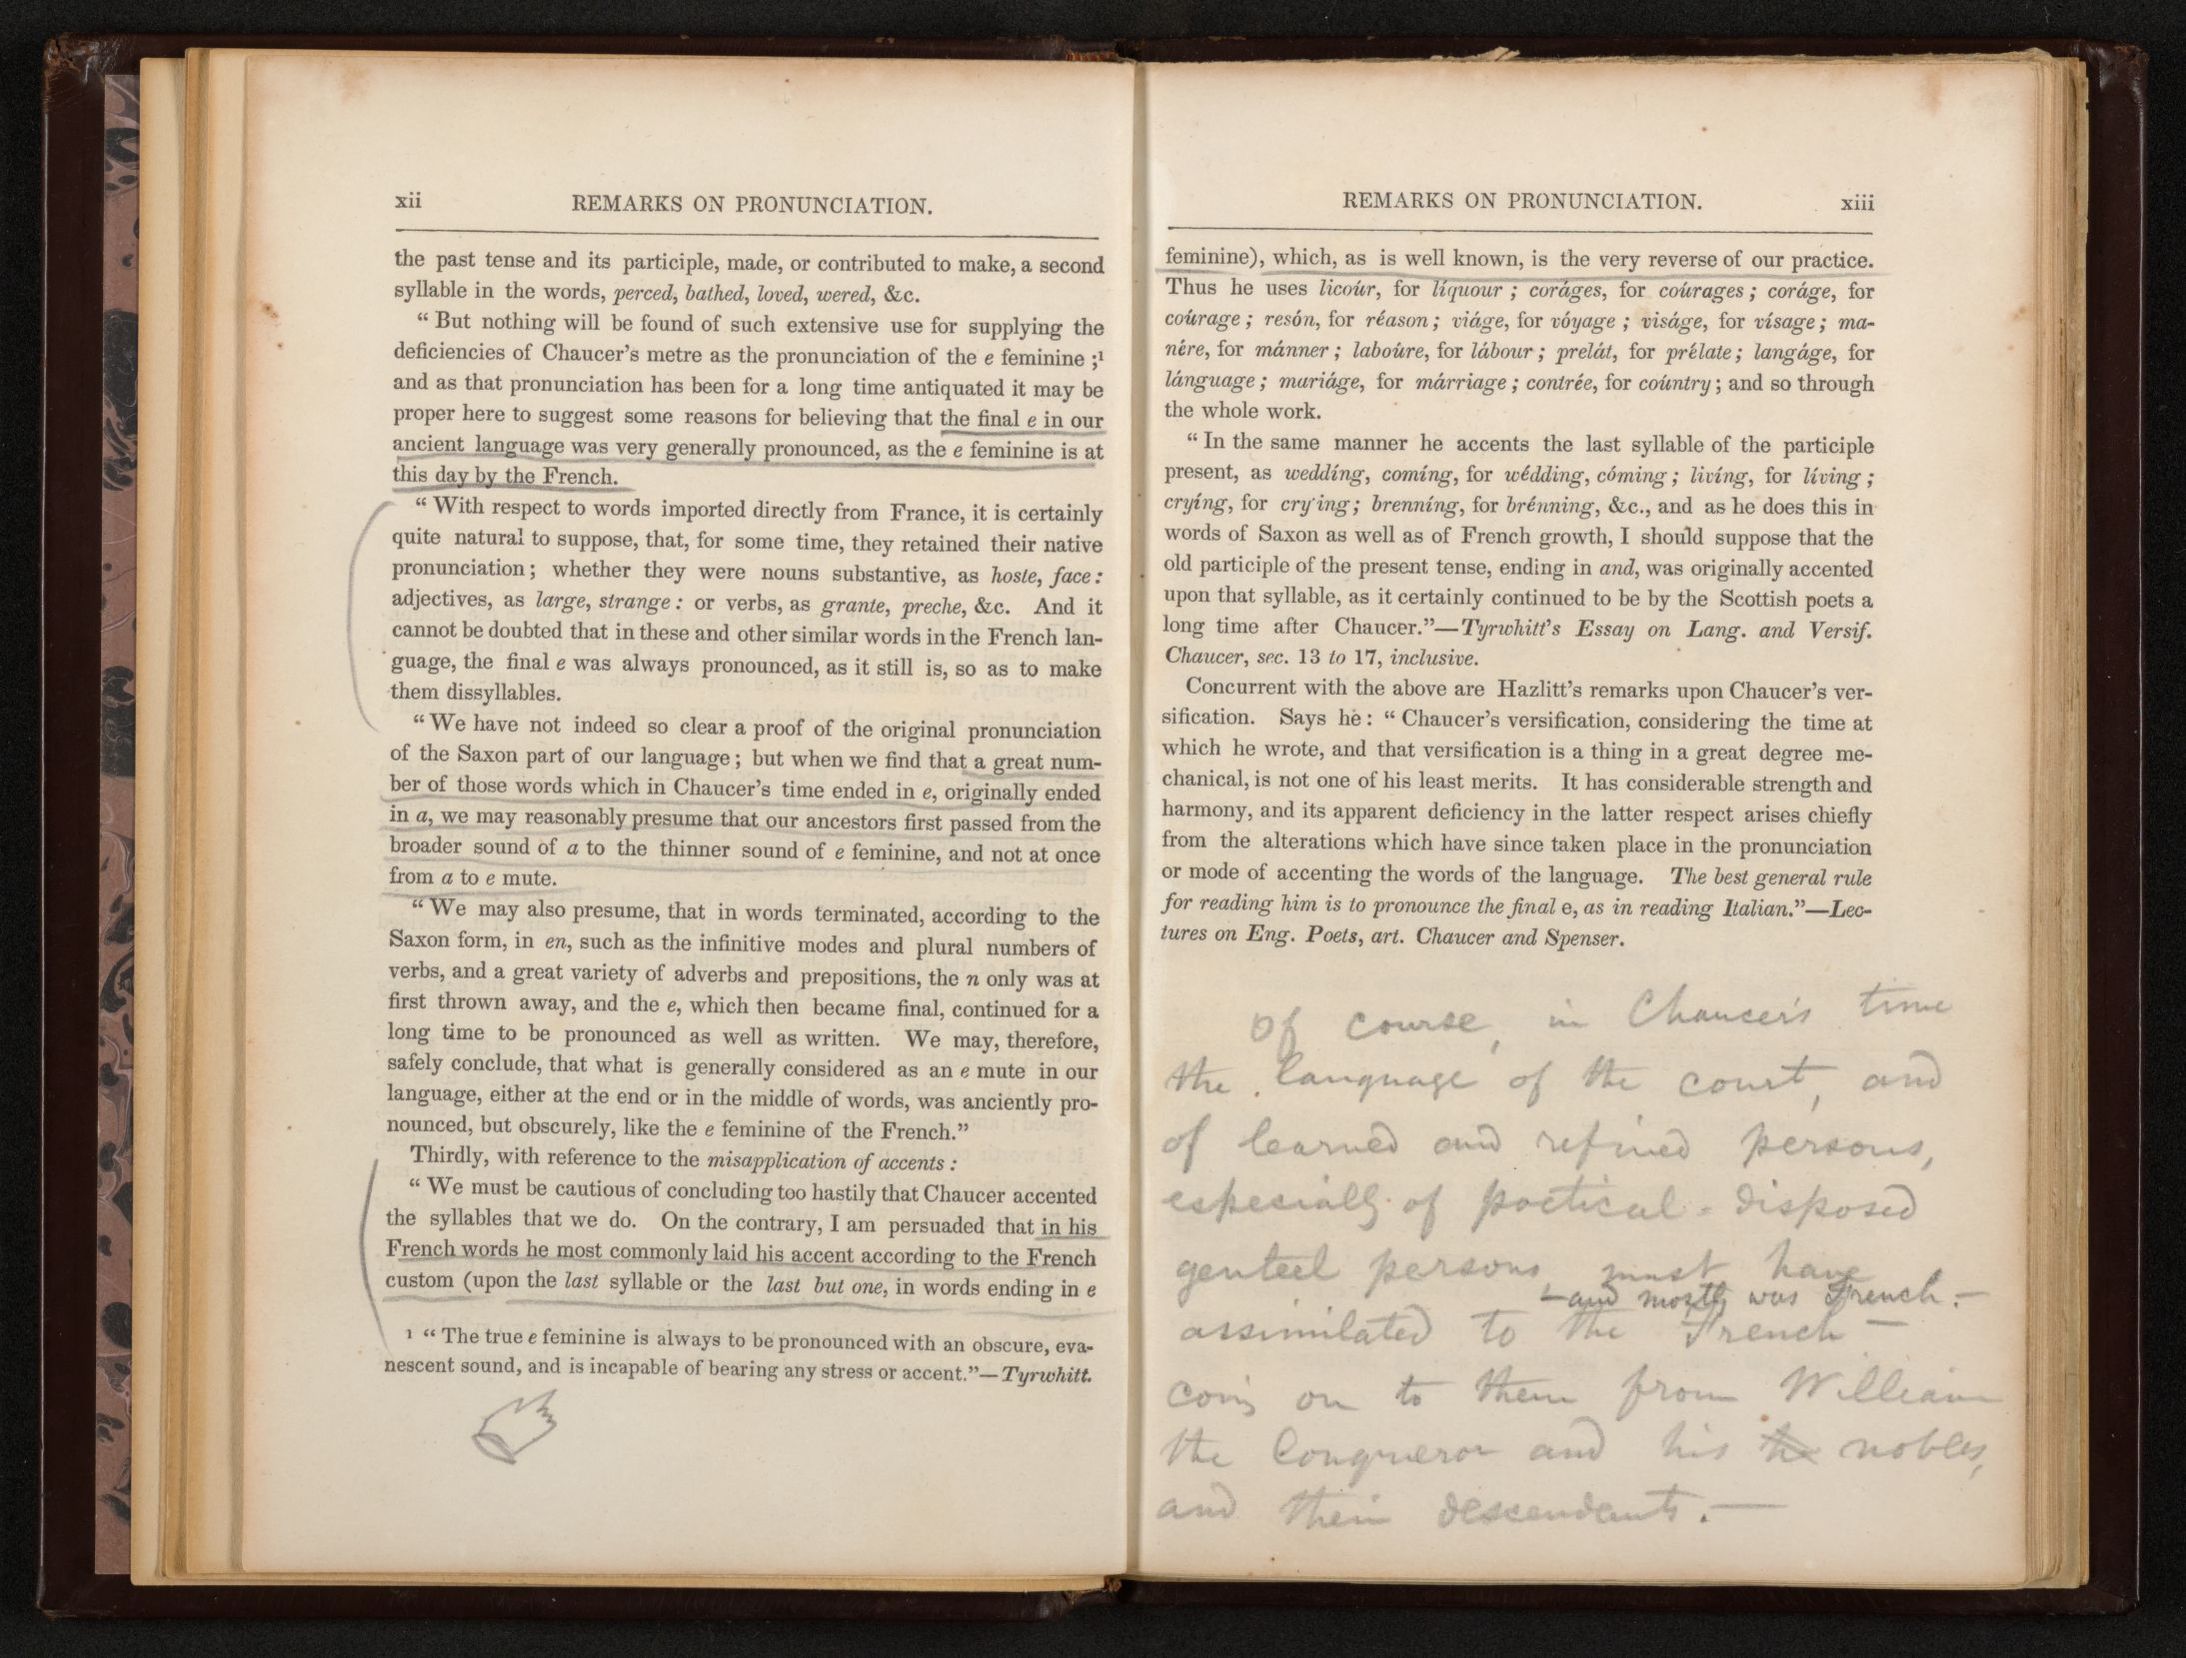 xii REMARKS ON PRONUNCIATION.
the past tense and its participle, made, or contributed to make, a second
syllable in the words, perced, bathed, loved, wered, &c.
“ But nothing will be found of such extensive use for supplying the
deficiencies of Chaucer’s metre as the pronunciation of the e feminine ;¹
and as that pronunciation has been for a long time antiquated it may be
proper here to suggest some reasons for believing that the final e in our
ancient language was very generally pronounced, as the e feminine is at
this day by the French.
“ With respect to words imported directly from France, it is certainly
quite natural to suppose, that, for some time, they retained their native
pronunciation; whether they were nouns substantive, as hoste, face:
adjectives, as large, strange: or verbs, as grante, preche, &c. And it
cannot be doubted that in these and other similar words in the French lan-
guage, the final e was always pronounced, as it still is, so as to make
them dissyllables.
“ We have not indeed so clear a proof of the original pronunciation
of the Saxon part of our language; but when we find that a great num-
ber of those words which in Chaucer’s time ended in e, originally ended
in a, we may reasonably presume that our ancestors first passed from the
broader sound of a to the thinner sound of e feminine, and not at once
from a to e mute.
“ We may also presume, that in words terminated, according to the
Saxon form, in en, such as the infinitive modes and plural numbers of
verbs, and a great variety of adverbs and prepositions, the n only was at
first thrown away, and the e, which then became final, continued for a
long time to be pronounced as well as written. We may, therefore,
safely conclude, that what is generally considered as an e mute in our
language, either at the end or in the middle of words, was anciently pro-
nounced, but obscurely, like the e feminine of the French.”
Thirdly, with reference to the misapplication of accents :
“ We must be cautious of concluding too hastily that Chaucer accented
the syllables that we do. On the contrary, I am persuaded that in his
French words he most commonly laid his accent according to the French
custom (upon the last syllable or the last but one, in words ending in e
¹ “ The true e feminine is always to be pronounced with an obscure, eva-
nescent sound, and is incapable of bearing any stress or accent.”—Tyrwhitt.
REMARKS ON PRONUNCIATION. xiii
feminine), which, as is well known, is the very reverse of our practice.
Thus he uses licoúr, for líquour ; coráges, for coúrages ; coráge, for
coúrage ; resón, for réason ; viáge, for vóyage ; viságe, for vísage ; ma-
nére, for mánner ; laboúre, for lábour ; prelát, for prélate ; langáge, for
lánguage ; mariáge, for márriage ; contrée, for coúntry ; and so through
the whole work.
“ In the same manner he accents the last syllable of the participle
present, as weddíng, comíng, for wédding, cóming ; livíng, for líving ;
cryíng, for crýing ; brenníng, for brénning, &c., and as he does this in
words of Saxon as well as of French growth, I should suppose that the
old participle of the present tense, ending in and, was originally accented
upon that syllable, as it certainly continued to be by the Scottish poets a
long time after Chaucer.”—Tyrwhitt’s Essay on Lang. and Versif.
Chaucer, sec. 13 to 17, inclusive.
Concurrent with the above are Hazlitt’s remarks upon Chaucer’s ver-
sification. Says he : “ Chaucer’s versification, considering the time at
which he wrote, and that versification is a thing in a great degree me-
chanical, is not one of his least merits. It has considerable strength and
harmony, and its apparent deficiency in the latter respect arises chiefly
from the alterations which have since taken place in the pronunciation
or mode of accenting the words of the language. The best general rule
for reading him is to pronounce the final e, as in reading Italian.”—Lec-
tures on Eng. Poets, art. Chaucer and Spenser.
Of course, in Chaucer's time
the language of the court, and
of learned and refined persons,
especially of poetical-disposed
genteel persons, must have
—and mostly was French.—
assimilated to the French —
on to them from William
the Conqueror and his nobles,
and their descendants.—